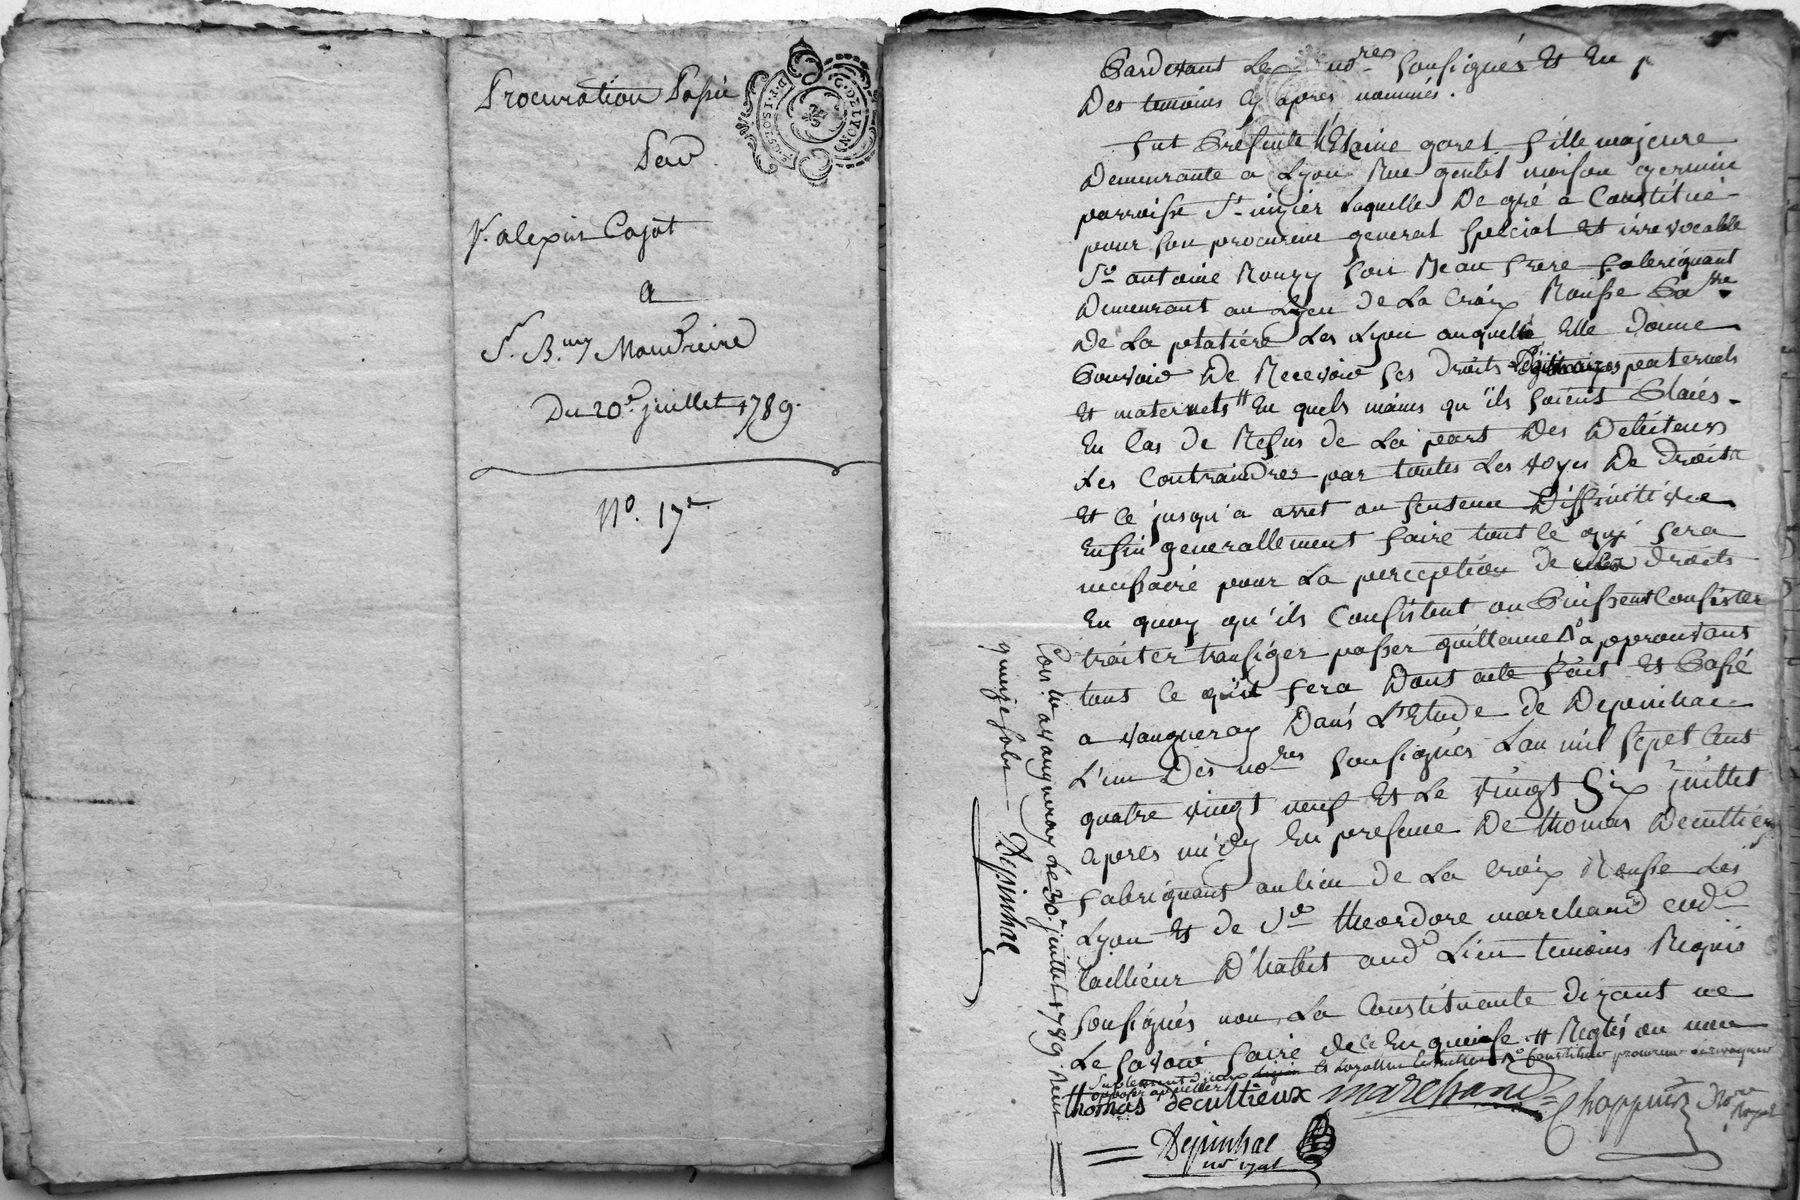 Procuration Passé
Par
S. alexis Cajot
a
S. B.my Maudreire
Du 20e juillet 1789.
No. 17e
G. DE LYON
Pardevant Les nores sousignés Et En p
Des temoins Cy apres nommés.
fut Presente Etaine goret fille majeure
Demeurante a Lyon Rue gentil maison germain
parroisse St nizier Laquelle De gré a Constitué
pour son procureur general special Et irrevocable
Sr antoine Rouzy son Beau frere fabriquant
Demeurant au Lieu de La Croix Rousse
De La platiére Les Lyon auquelle Elle donne
Pouvoir De Recevoir ses droits Légitimaires paternels
Et maternels # En quels mains qu'ils soient Placés
En Cas de Refus de La part Des Debiteurs
Les Contraindres par toutes Les voyes De droits
Et Ce jusqu'a arret ou sentence Diffinitive
Enfin generallement faire tout Ce quy sera
nessairé pour La perception de droits
En quoy qu'ils Consistent ou Puissent Consister
traiter transiger passer quittance approuvant
tout Ce qu'il sera Dont acte fait Et Passé
a vaugneray Dans L'Etude de Depinhac
L'un Des nores sousignés Lan mil sept Cent
quatre vingt neuf Et Le vingt six juillet
apres midy En presence De thomas Decultieux
fabriquant au lieu de La Croix Rousse Les
Lyon Et de Sr theordore marchand
taillieur D'habit aud Lieu temoins Requis
soussignés non La Constituante dizant ne
Le savoir faire de Ce Enquise # Reglés ou non
thomas decultieux marchand Chappuis
Depinhac
no royal
Con.lé a vaugneray Le 30e juillet 1789 Reçu
quinze sols Depinhac